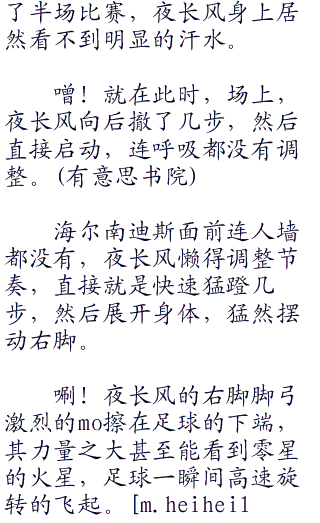 了半场比赛，夜长风身上居
然看不到明显的汗水。
噌！就在此时，场上，
夜长风向后撤了几步，然后
直接启动，连呼吸都没有调
整。(有意思书院)
海尔南迪斯面前连人墙
都没有，夜长风懒得调整节
奏，直接就是快速猛蹬几
步，然后展开身体，猛然摆
动右脚。
唰！夜长风的右脚脚弓
激烈的mo擦在足球的下端，
其力量之大甚至能看到零星
的火星，足球一瞬间高速旋
转的飞起。[m.heihei1